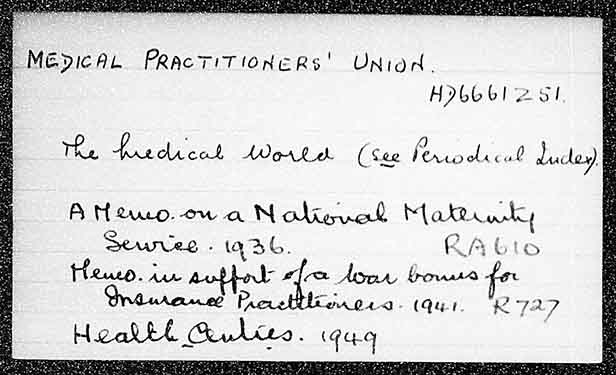 MEDICAL PRACTITIONERS' UNION.
HD6661 Z 51.
The Medical World (see Periodical Index).
A Memo. on a National Maternity
Service. 1936. RA610
Memo. in support of a War bonus for
Insurance Practitioners. 1941. R727
Health Centres. 1949